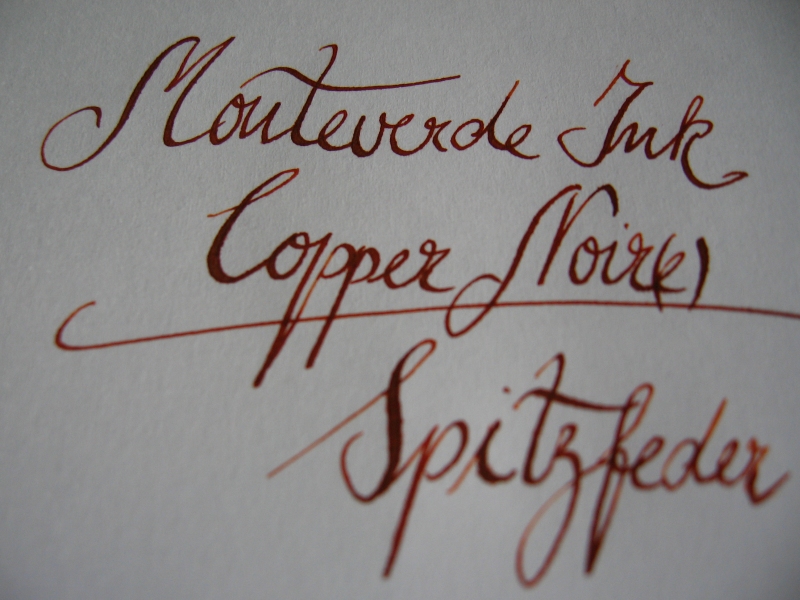 Monteverde Ink
Copper Noir(e)
Spitzfeder